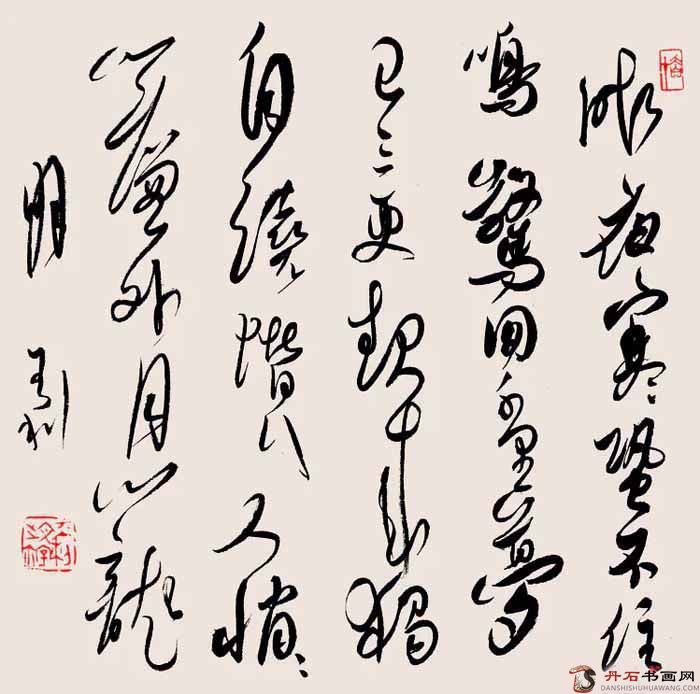 昨夜寒蛩不住
鳴驚回千里夢
已三更起來獨
自繞階行人悄〻
簾外月朧
明
丹石书画网
DANSHISHUHUAWANG.COM